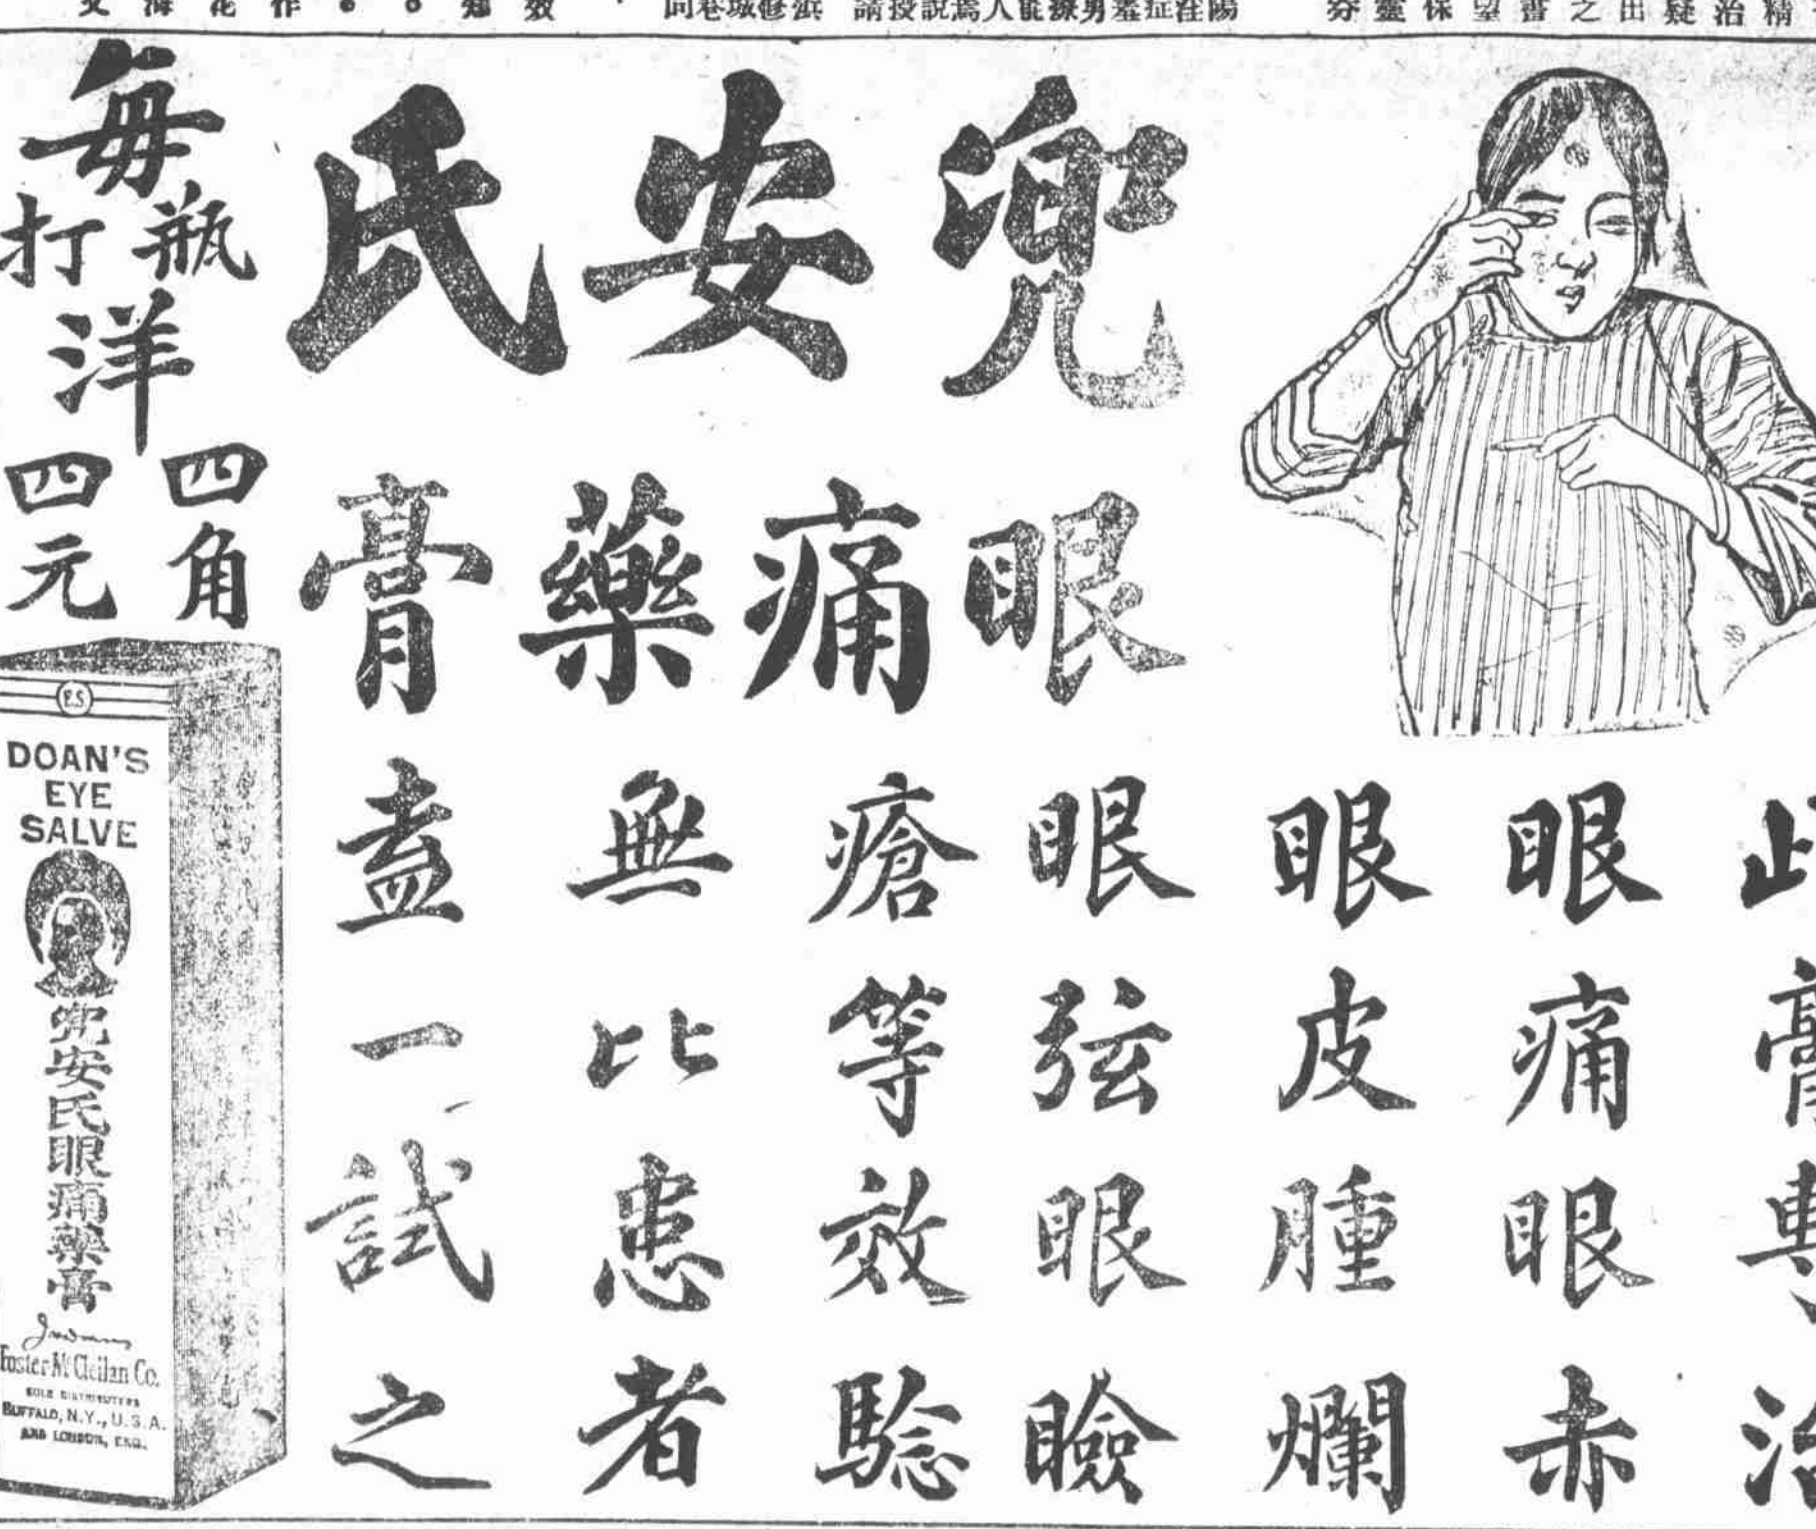 兜安氏
眼痛藥膏
此膏專治
眼痛眼赤
眼皮腫爛
眼弦眼瞼
瘡等效騐
無比患者
盍一試之
每瓶洋四角
打四元
DOAN'S
EYE
SALVE
兜安氏眼痛藥膏
Foster-McClellan Co.
SOLE DISTRIBUTERS
BUFFALO, N.Y., U.S.A.
AND LONDON, ENG.